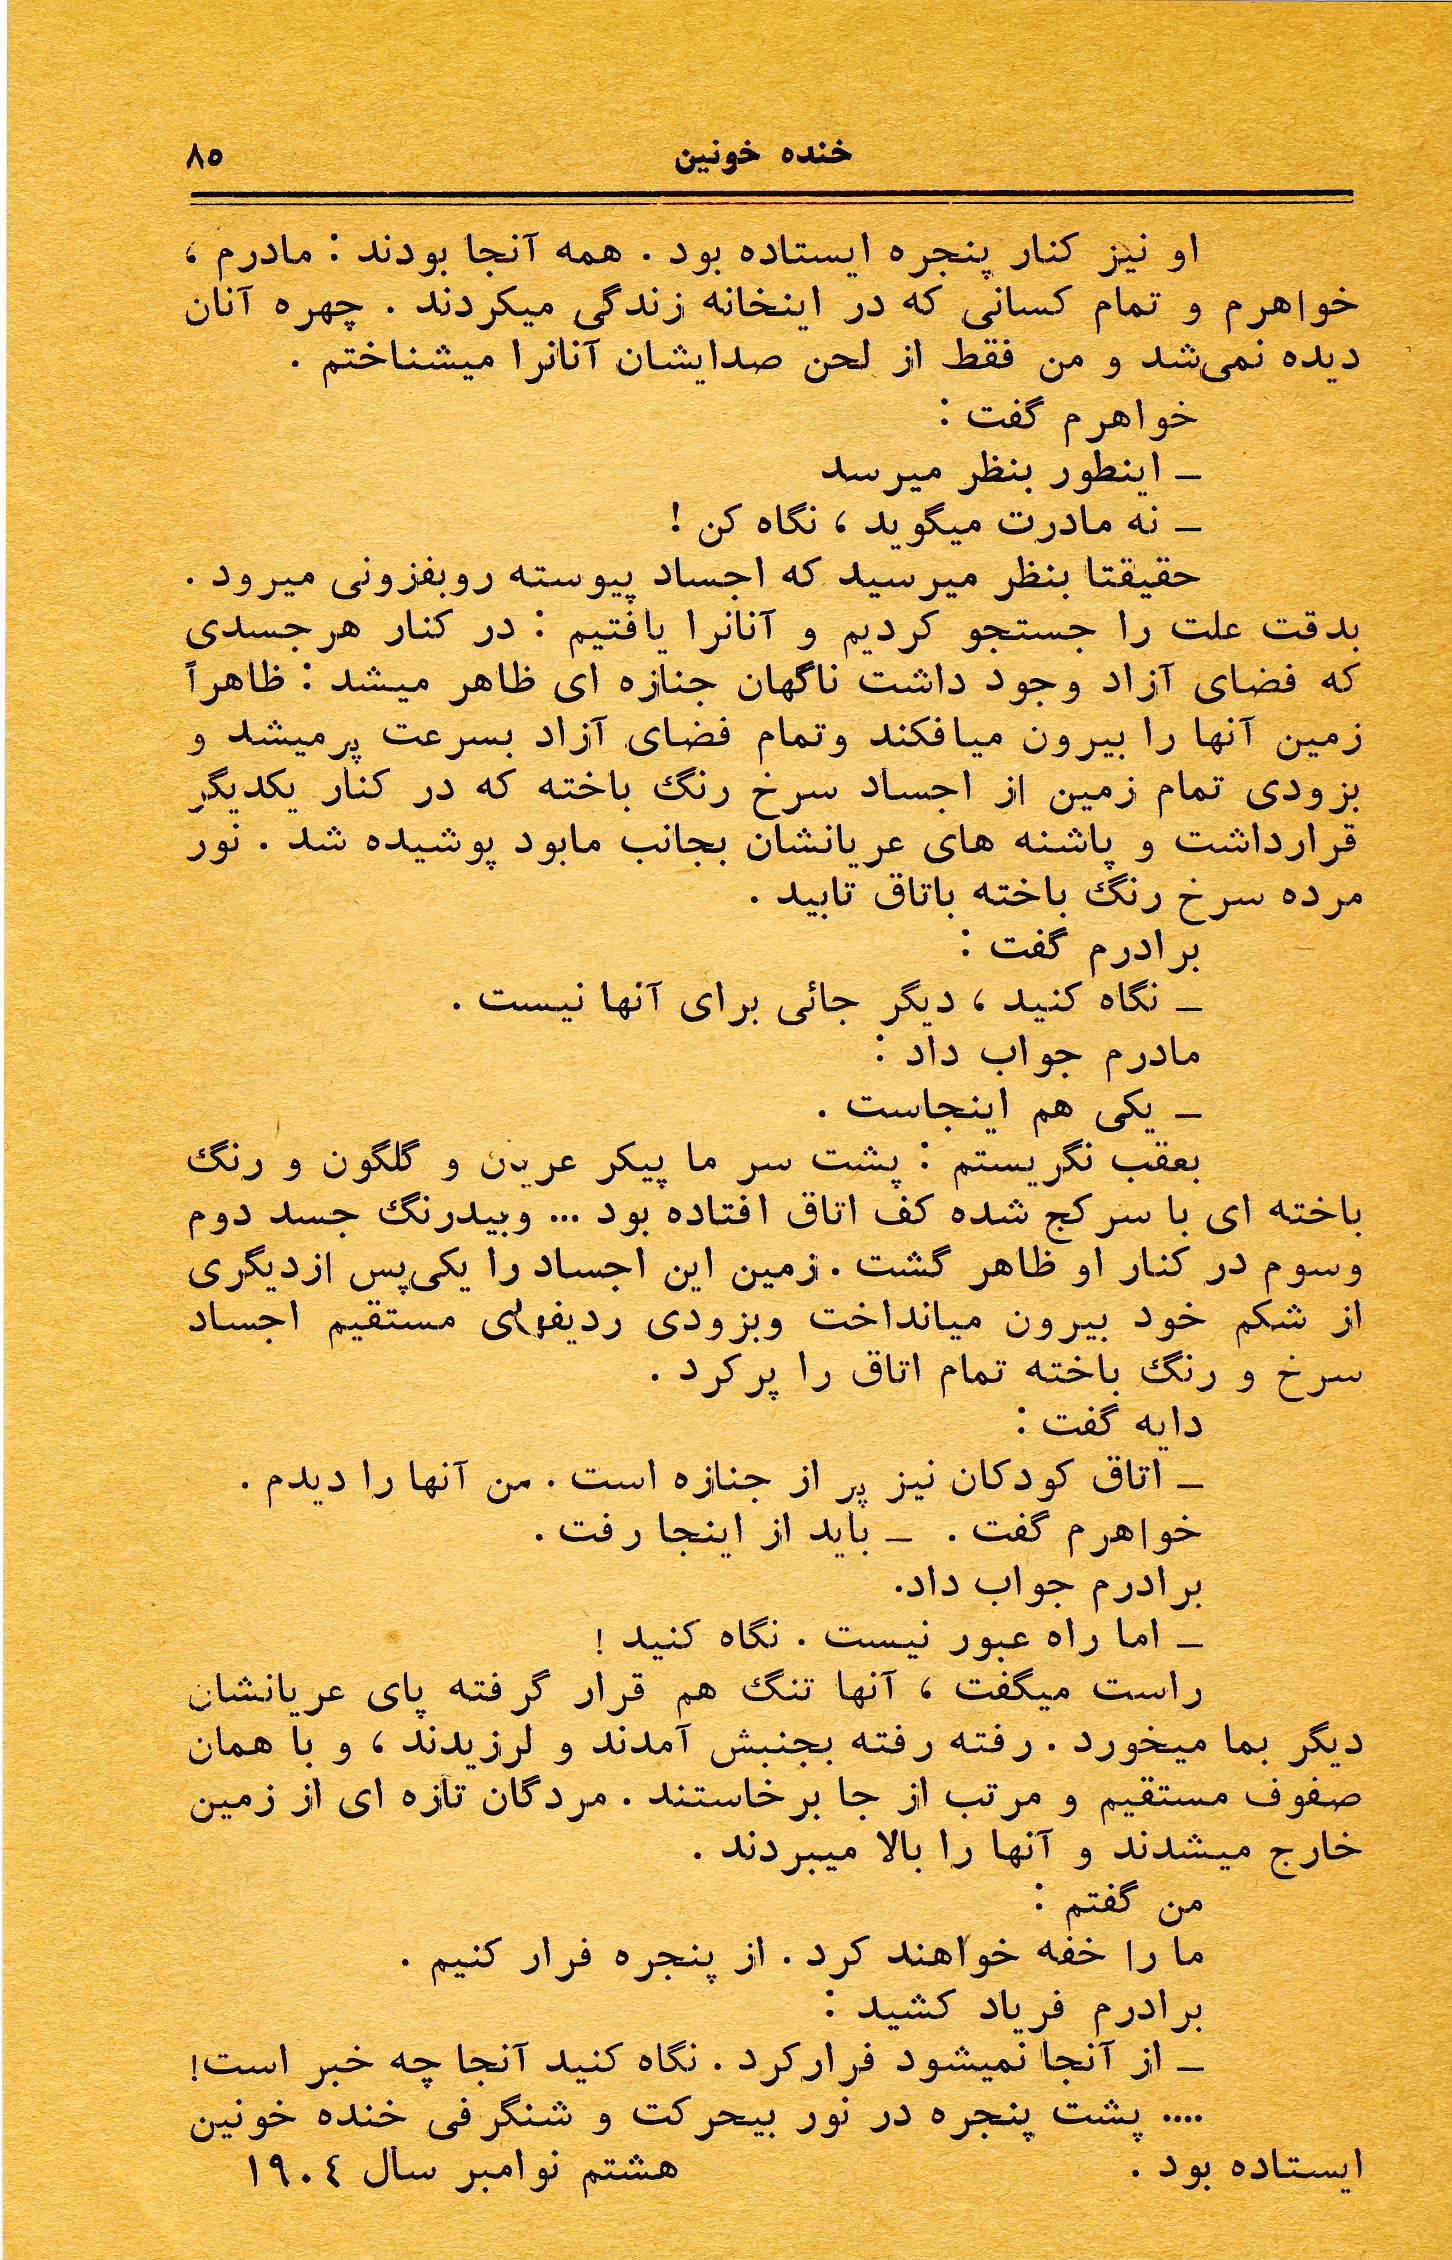 خنده خونین ۸۵
او نیز کنار پنجره ایستاده بود . همه آنجا بودند : مادرم ،
خواهرم و تمام کسانی که در اینخانه زندگی میکردند . چهره آنان
دیده نمی‌شد و من فقط از لحن صدایشان آنانرا میشناختم .
خواهرم گفت :
ـ اینطور بنظر میرسد
ـ نه مادرت میگوید ، نگاه کن !
حقیقتا بنظر میرسید که اجساد پیوسته روبفزونی میرود .
بدقت علت را جستجو کردیم و آنانرا یافتیم : در کنار هرجسدی
که فضای آزاد وجود داشت ناگهان جنازه ای ظاهر میشد : ظاهراً
زمین آنها را بیرون میافکند وتمام فضای آزاد بسرعت پرمیشد و
بزودی تمام زمین از اجساد سرخ رنگ باخته که در کنار یکدیگر
قرارداشت و پاشنه های عریانشان بجانب مابود پوشیده شد . نور
مرده سرخ رنگ باخته باتاق تابید .
برادرم گفت :
ـ نگاه کنید ، دیگر جائی برای آنها نیست .
مادرم جواب داد :
ـ یکی هم اینجاست .
بعقب نگریستم : پشت سر ما پیکر عریان و گلگون و رنگ
باخته ای با سرکج شده کف اتاق افتاده بود ... وبیدرنگ جسد دوم
وسوم در کنار او ظاهر گشت . زمین این اجساد را یکی‌پس ازدیگری
از شکم خود بیرون میانداخت وبزودی ردیفهای مستقیم اجساد
سرخ و رنگ باخته تمام اتاق را پرکرد .
دایه گفت :
ـ اتاق کودکان نیز پر از جنازه است . من آنها را دیدم .
خواهرم گفت . ـ باید از اینجا رفت .
برادرم جواب داد.
ـ اما راه عبور نیست . نگاه کنید !
راست میگفت ، آنها تنگ هم قرار گرفته پای عریانشان
دیگر بما میخورد . رفته رفته بجنبش آمدند و لرزیدند ، و با همان
صفوف مستقیم و مرتب از جا برخاستند . مردگان تازه ای از زمین
خارج میشدند و آنها را بالا میبردند .
من گفتم :
ما را خفه خواهند کرد . از پنجره فرار کنیم .
برادرم فریاد کشید :
ـ از آنجا نمیشود فرارکرد . نگاه کنید آنجا چه خبر است!
.... پشت پنجره در نور بیحرکت و شنگرفی خنده خونین
ایستاده بود . هشتم نوامبر سال ۱۹۰٤